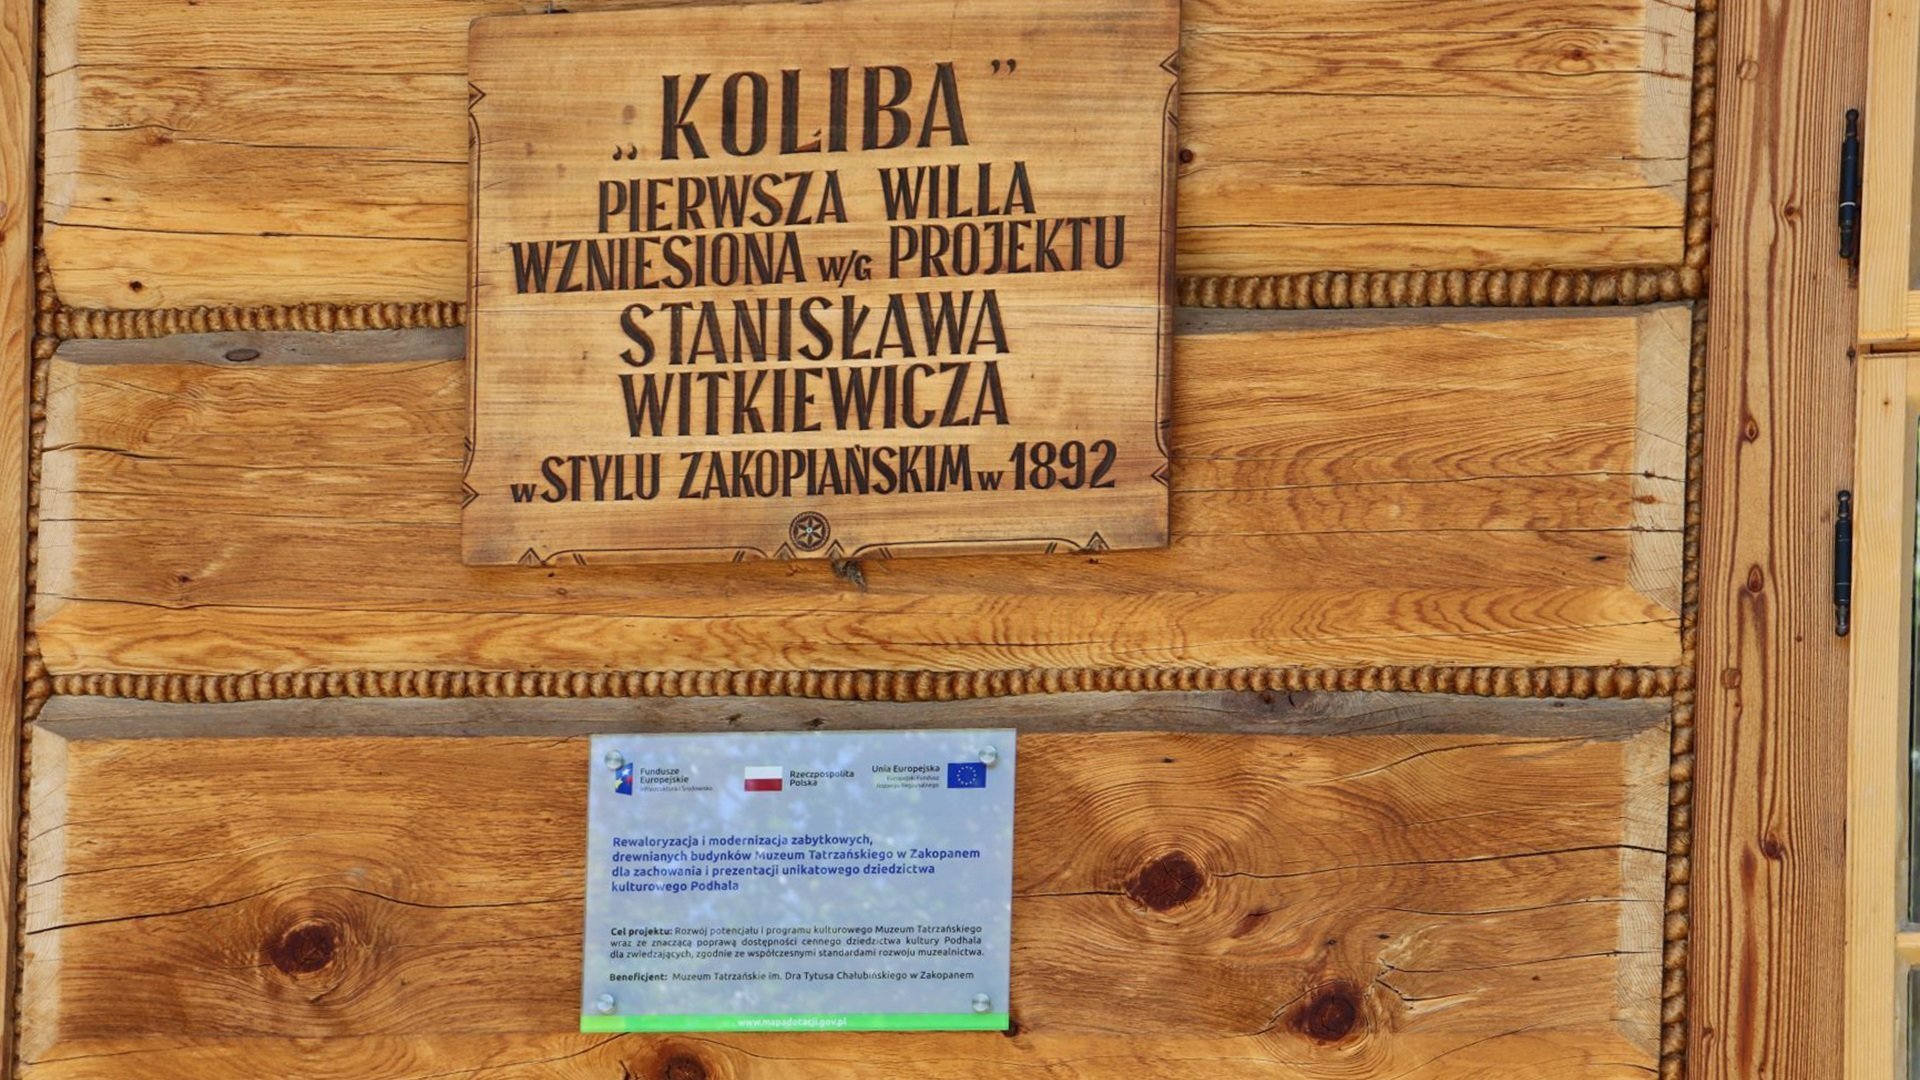 „KOLIBA”
PIERWSZA WILLA
WZNIESIONA W/G PROJEKTU
STANISŁAWA
WITKIEWICZA
w STYLU ZAKOPIAŃSKIM w 1892
Fundusze
Europejskie
Infrastruktura i Środowisko
Rzeczpospolita
Polska
Unia Europejska
Europejski Fundusz
Rozwoju Regionalnego
Rewaloryzacja i modernizacja zabytkowych,
drewnianych budynków Muzeum Tatrzańskiego w Zakopanem
dla zachowania i prezentacji unikatowego dziedzictwa
kulturowego Podhala
Cel projektu: Rozwój potencjału i programu kulturowego Muzeum Tatrzańskiego
wraz ze znaczącą poprawą dostępności cennego dziedzictwa kultury Podhala
dla zwiedzających, zgodnie ze współczesnymi standardami rozwoju muzealnictwa.
Beneficjent: Muzeum Tatrzańskie im. Dra Tytusa Chałubińskiego w Zakopanem
www.mapadotacji.gov.pl